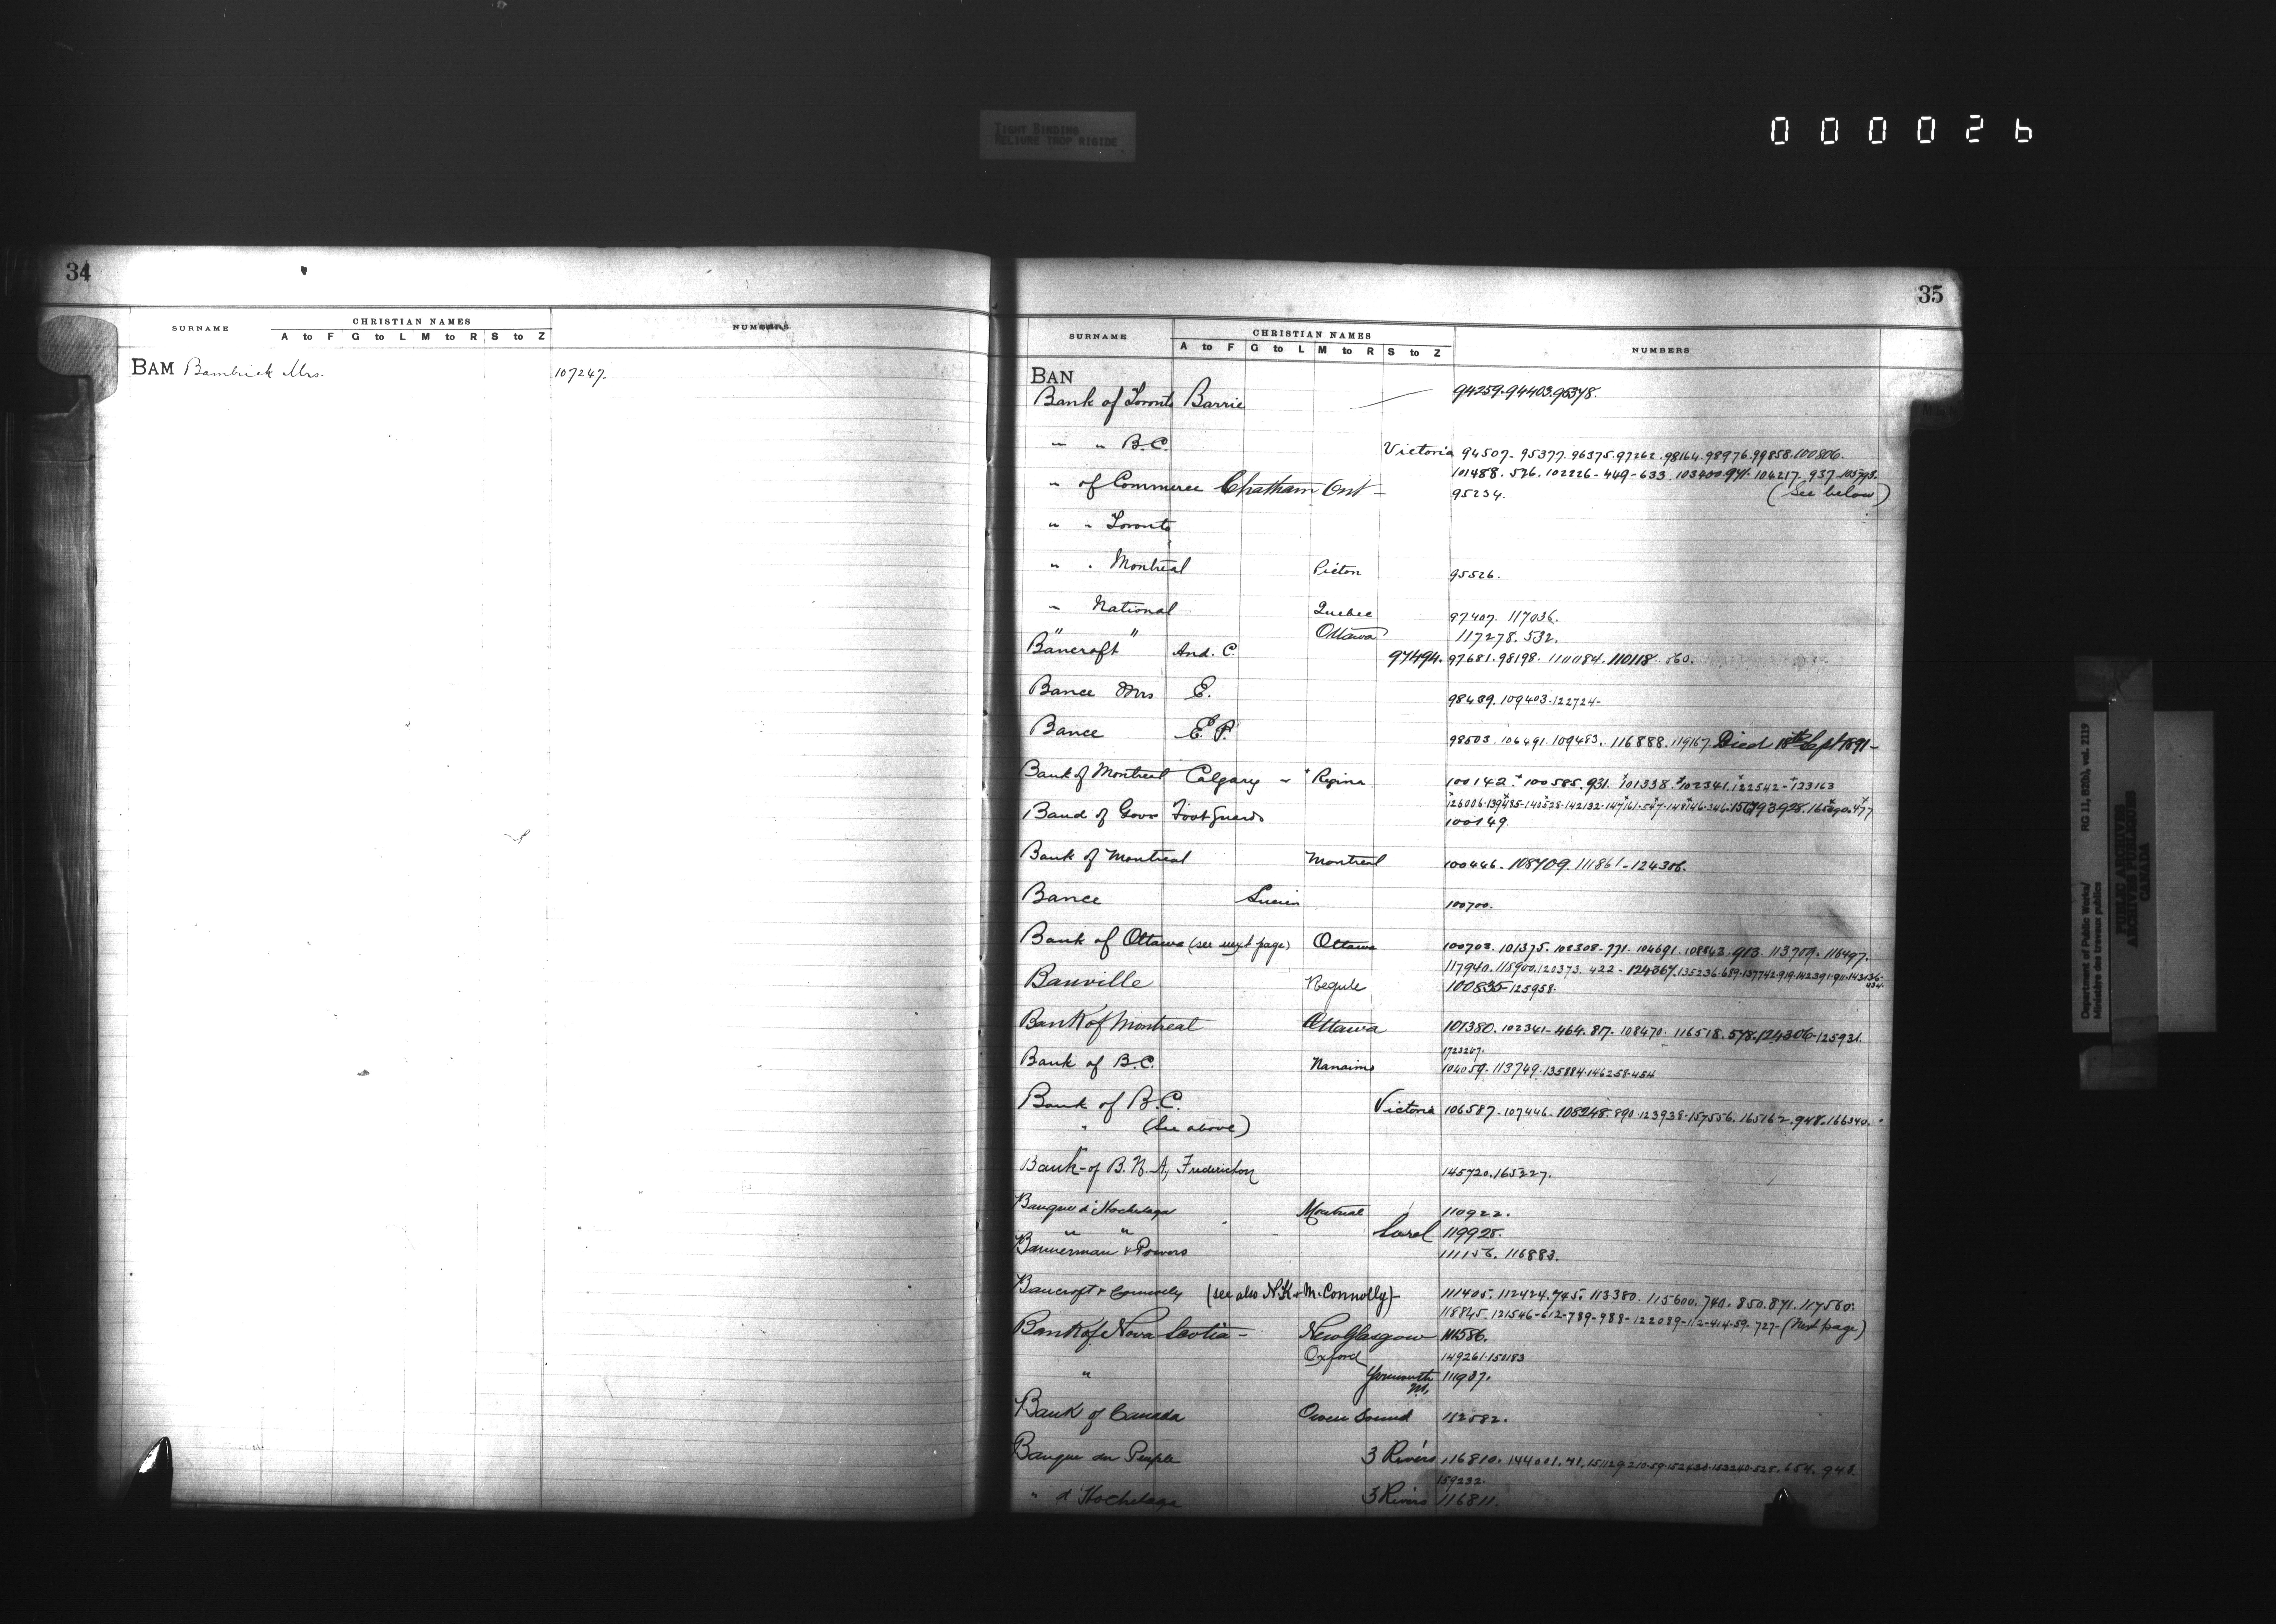 TIGHT BINDING
RELIURE TROP RIGIDE
000026
34
SURNAME CHRISTIAN NAMES NUMBERS
A to F G to L M to R S to Z
BAM Bambrick Mrs. 107247.
35
SURNAME CHRISTIAN NAMES NUMBERS
A to F G to L M to R S to Z
BAN
Bank of Toronto Barrie 94259. 94403. 95378.
" " B.C. Victoria 94507- 95377. 96375. 97262. 98164. 98976. 99858. 100806.
101488. 526. 102226- 449-633. 103400. 941. 104217. 937. 105793.
" of Commerce Chatham Ont - 95234. (See below)
" " Toronto
" " Montreal Picton 95526.
" National Quebec 97407. 117036.
" " Ottawa 117278. 532.
Bancroft And. C. 97494. 97681. 98198. 110084. 110118. 860.
Bance Mrs E. 98439. 109403. 122724-
Bance E. P. 98503. 106491. 109483. 116888. 119167. Died 18th Sept 1891-
Bank of Montreal Calgary - + Regina 100142. + 100585. 931. + 101338. + 102341. + 122542 - + 123163
Band of Govr Foot Guards 100149.
Bank of Montreal Montreal 100446. 108709. 111861-124306.
Bance Lucien 100700.
Bank of Ottawa (see next page) Ottawa 100703. 101375. 102308-771. 104691. 108863. 913. 113709. 116497.
117940. 118900. 120373. 422- 124367. 135236-689-137742-919-142391-911-143136-
434.
Banville Regule 100835-125958.
Bank of Montreal Ottawa 101380. 102341- 464. 817- 108470- 116518. 578. 124306-125931.
Bank of B.C. Nanaimo 104059. 113749. 135884. 146258-454
Bank of B.C. Victoria 106587. 107446. 108248. 890. 123938. 157556. 165162. 948. 166340.
" (See above)
Bank of B.N.A, Fredericton 145720. 165227.
Banque d'Hochelaga Montreal 110922.
" " Sorel 119928.
Bannerman & Powers 111156. 116883.
Bancroft & Connolly (see also N.K & M. Connolly)- 111405. 112424. 745. 113380. 115600. 740. 850. 871. 117560.
118845. 121546-612-789-988-122089-112-414-59. 727- (Next page)
Bank of Nova Scotia - New Glasgow 111586.
Oxford 149261. 150183
" Yarmouth 111937.
N.S.
Bank of Canada Owen Sound 112582.
Banque du Peuple 3 Rivers 116810. 144001. 41. 151129. 210. 59. 152430. 153240. 525. 654. 948.
159232.
" d'Hochelaga 3 Rivers 116811.
Department of Public Works/
Ministère des travaux publics
RG 11, B2(b), vol. 2119
PUBLIC ARCHIVES
ARCHIVES PUBLIQUES
CANADA